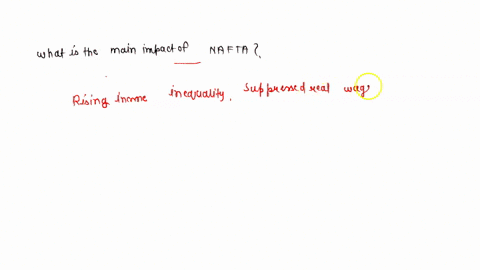 what is the main impact of NAFTA?
Rising income inequality, suppressed real wag